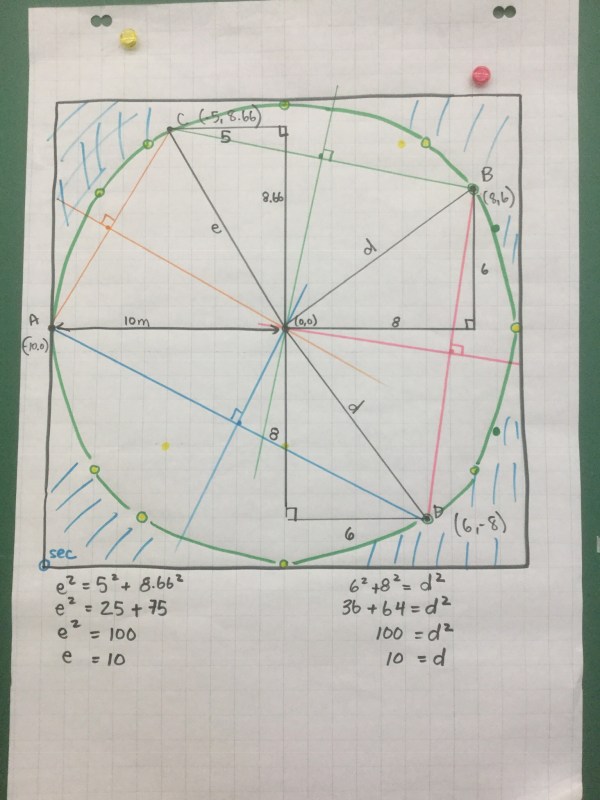 C (-5, 8.66)
5
8.66
B
(8,6)
e
d
6
A
10m
(0,0)
8
(-10,0)
d
8
6
(6,-8)
sec
e² = 5² + 8.66²
e² = 25 + 75
e² = 100
e = 10
6² + 8² = d²
36 + 64 = d²
100 = d²
10 = d